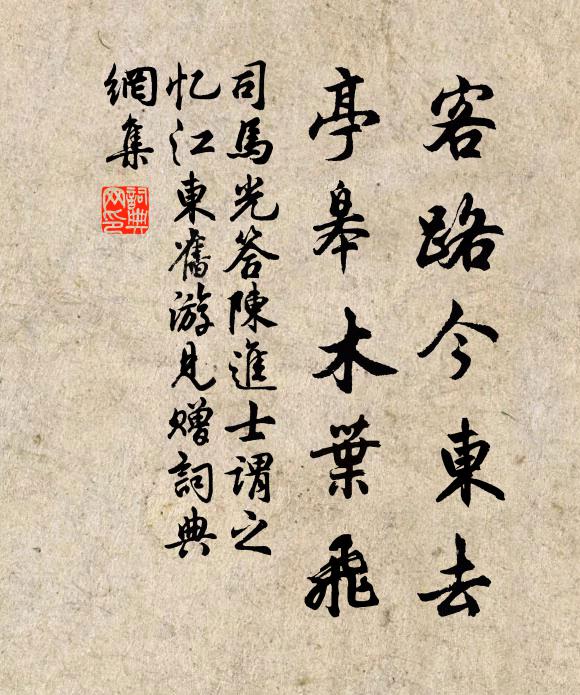 客路今東去
亭皋木葉飛
司馬光答陳進士謂之
忆江東舊游見贈詞典
網集
詞典網印